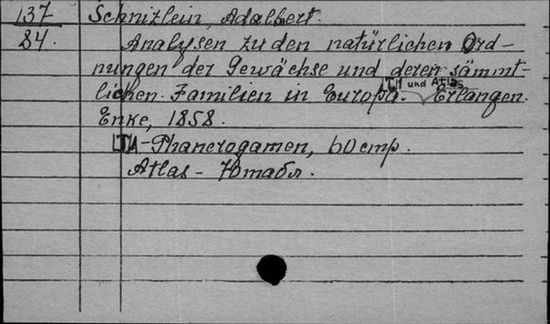 137 Schnizlein, Adalbert.
84. Analysen zu den natürlichen Ord-
nungen der Gewächse und deren sämmt-
lichen Familien in Europa. und Atlas Erlangen.
Enke, 1858.
Phanerogamen, 60 стр.
Atlas - 70 табл.